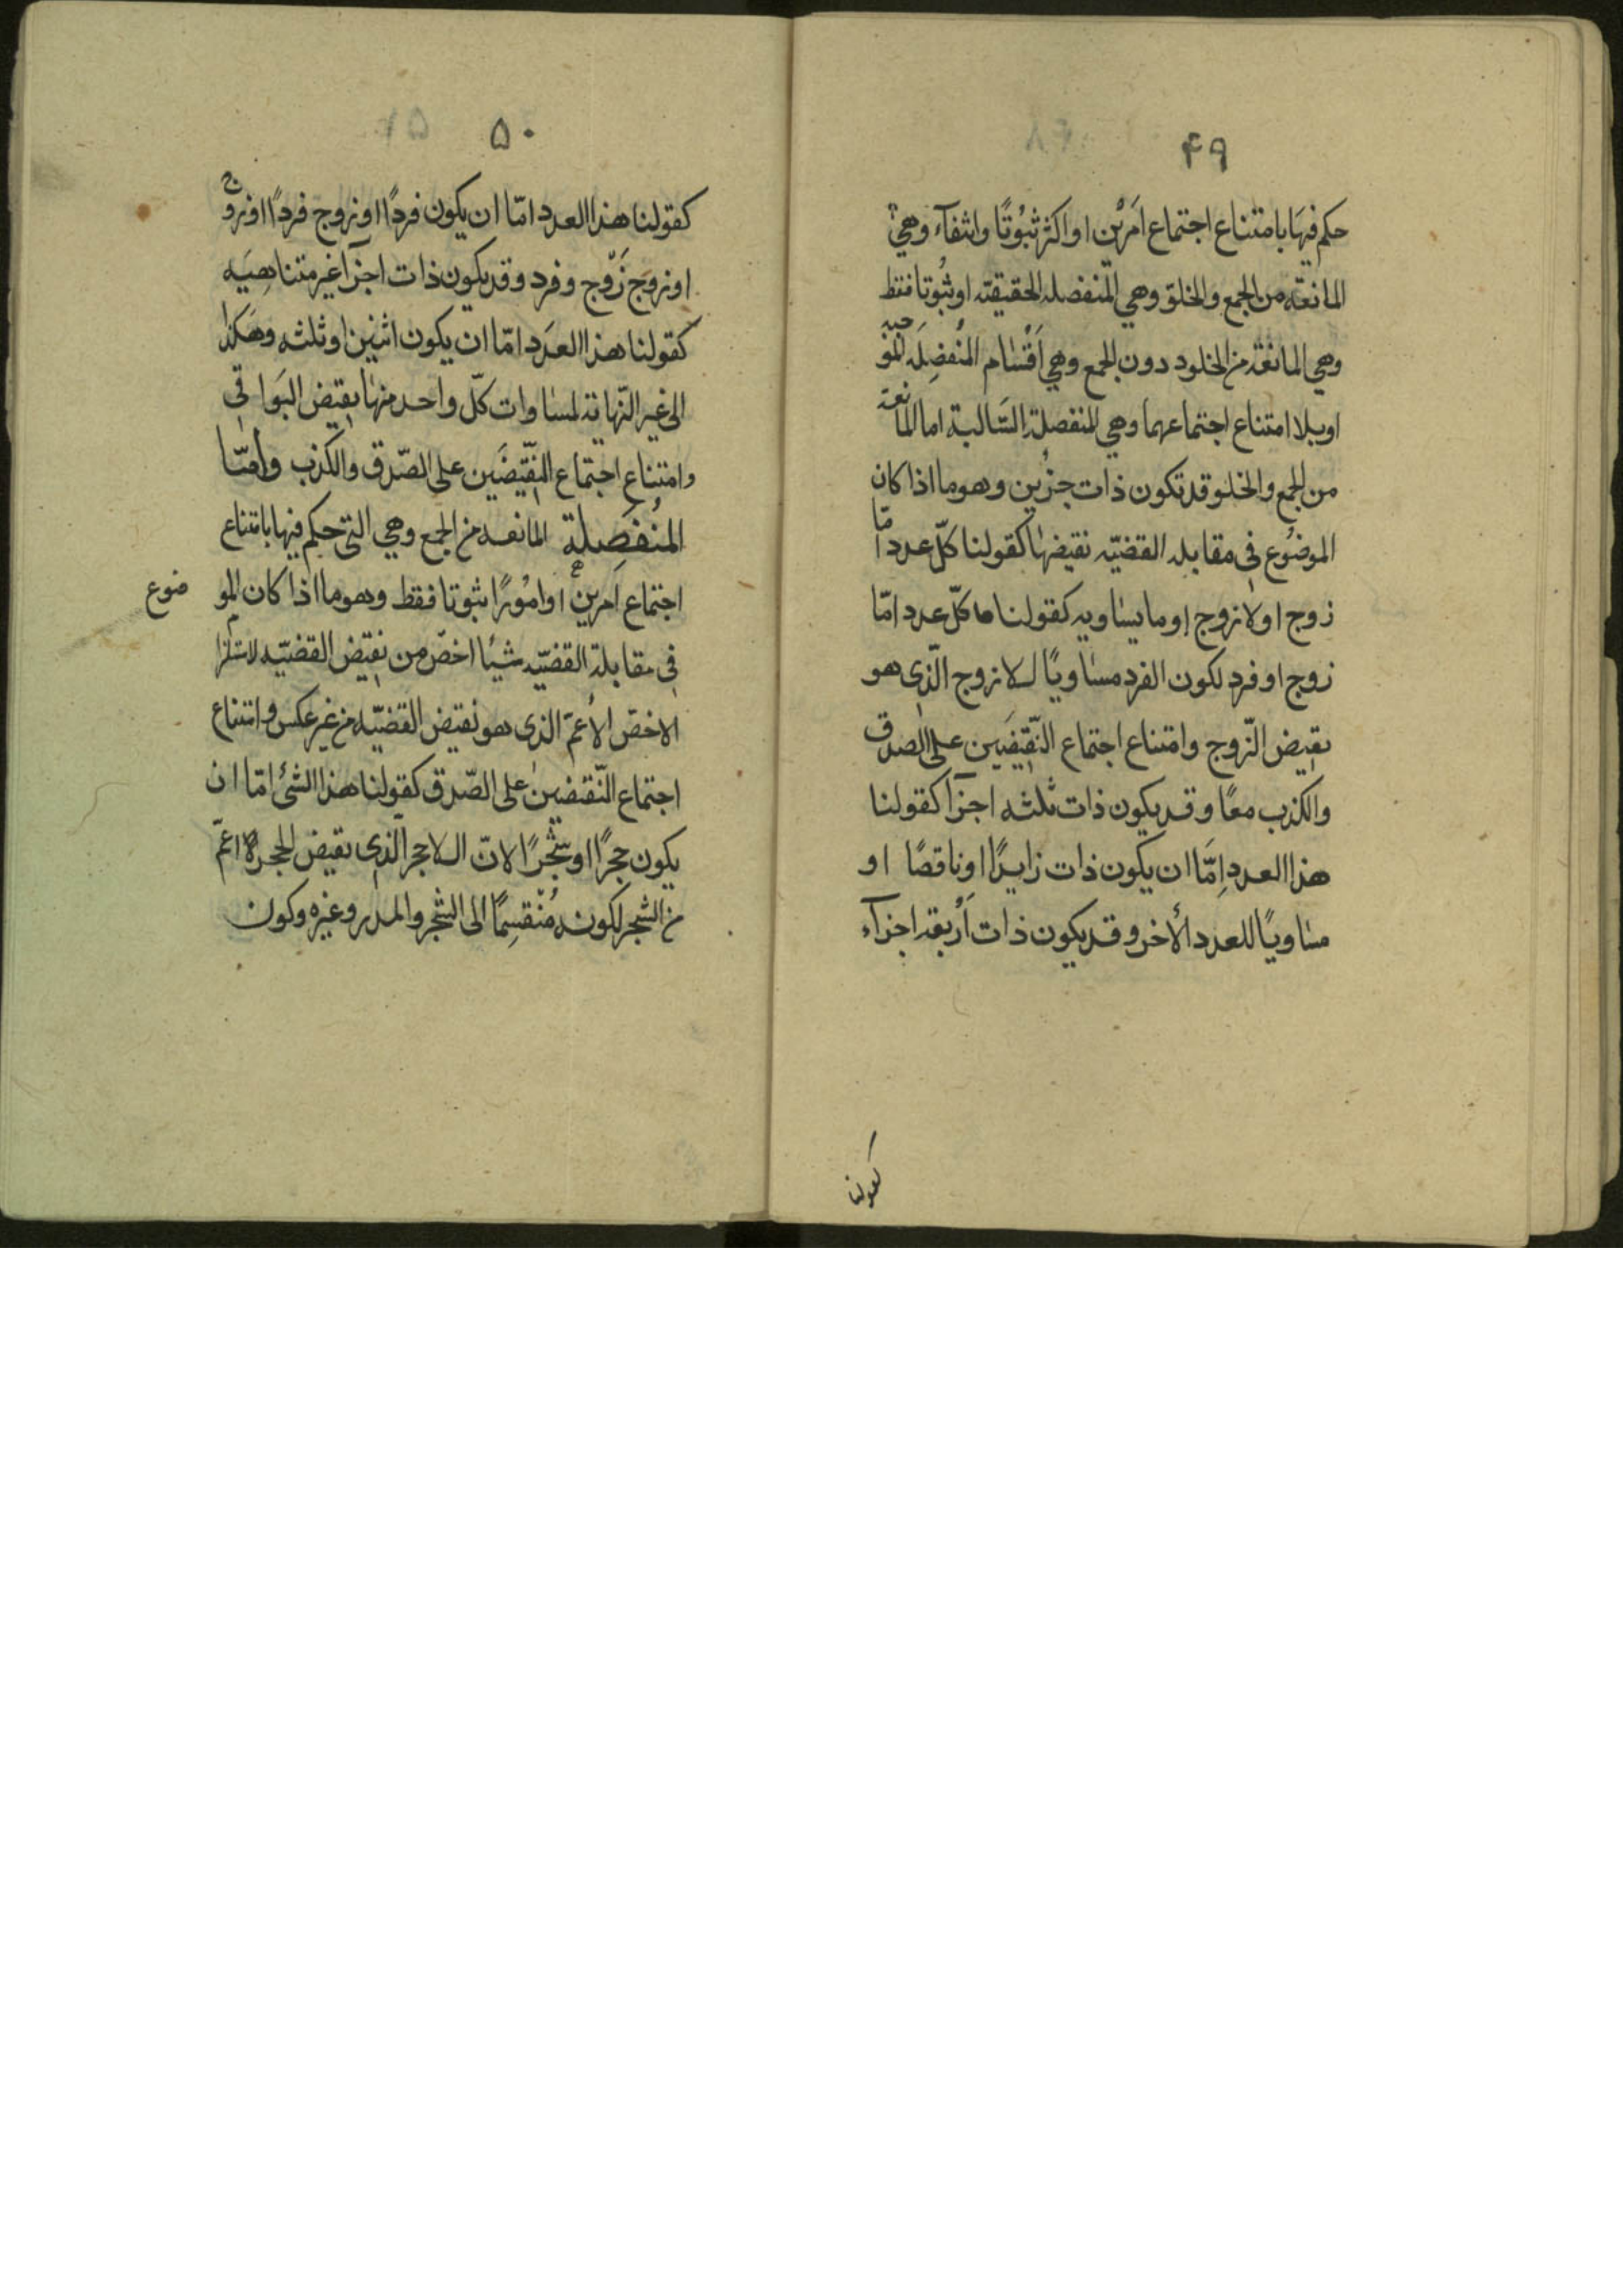 ۴۹
حكم فيهَا بامتناع اجتماع امَرَيْن او اكثر ثبُوتًا وانتفآء وهي
المانعَة من الجمع والخلوّ وهي المنفصله الحقيقته او ثبُوتا فقط
وهي المانعَة من الخلود دون الجمع وهي اَقسَام المُنفصِلَه المُوجبه
او بلا امتناع اجتماعهما وهي المنفصلة السَّالبة اما المانعة
من الجمع والخلو قد تكون ذات جزُين وهو ما اذا كان
الموضُوع فى مقابله القضيّه نقيضهَا كقولنا كلّ عدد امّا
زوج او لا زوج او ما يسَاويه كقولنا ما كلّ عدد امّا
زوج او فرد لكون الفرد مسَاويًا للازوج الّذى هو
نقيض الزّوج وامتناع اجتماع النّقِيضَيِن على الصّدق
والكذب معًا وقد يكون ذات ثلثه اجزآ كقولنا
هذا العدد اِمَّا ان يكون ذات زايدًا او ناقصًا او
مسَاويًا للعدد الأخر وقد يكون ذات اَرْبعَه اجزآء
كقولنا
۵۰
كقولنا هذا العدد امّا ان يكون فردًا او زوج فردًا او زوج
او زوجَ زَوْج وفرد وقد يكون ذات اجزآ غير متناهِيَه
كقولنا هذا العدَد امّا ان يكون اثنين او ثلثه وهَكذا
الى غير النّهاية لمساوات كلّ واحد منهَا نقيض البَواقى
وامتناع اجتماع النقّيضَين على الصّدق والكذب وامّا
المُنفَصِلة المانعه من الجمع وهي التى حكم فيها بامتناع
اجتماع امرين او امُورًا ثبوتا فقط وهو ما اذا كان المو ضوع
فى مقابلة القضيّه شيئا اخصّ من نقيض القضيّه لاستلزام
الاخصّ الأعمّ الذى هو نقيض القضيّه من غير عكس وامتناع
اجتماع النّقيضين على الصّدق كقولنا هذا الشئ امّا ان
يكون حجرًا او شجرًا لانّ اللاحجر الّذى نقيض الحجر اعمّ
من الشجر لكونه مُنْقسِمًا الى الشّجر والمدر وغيره وكون